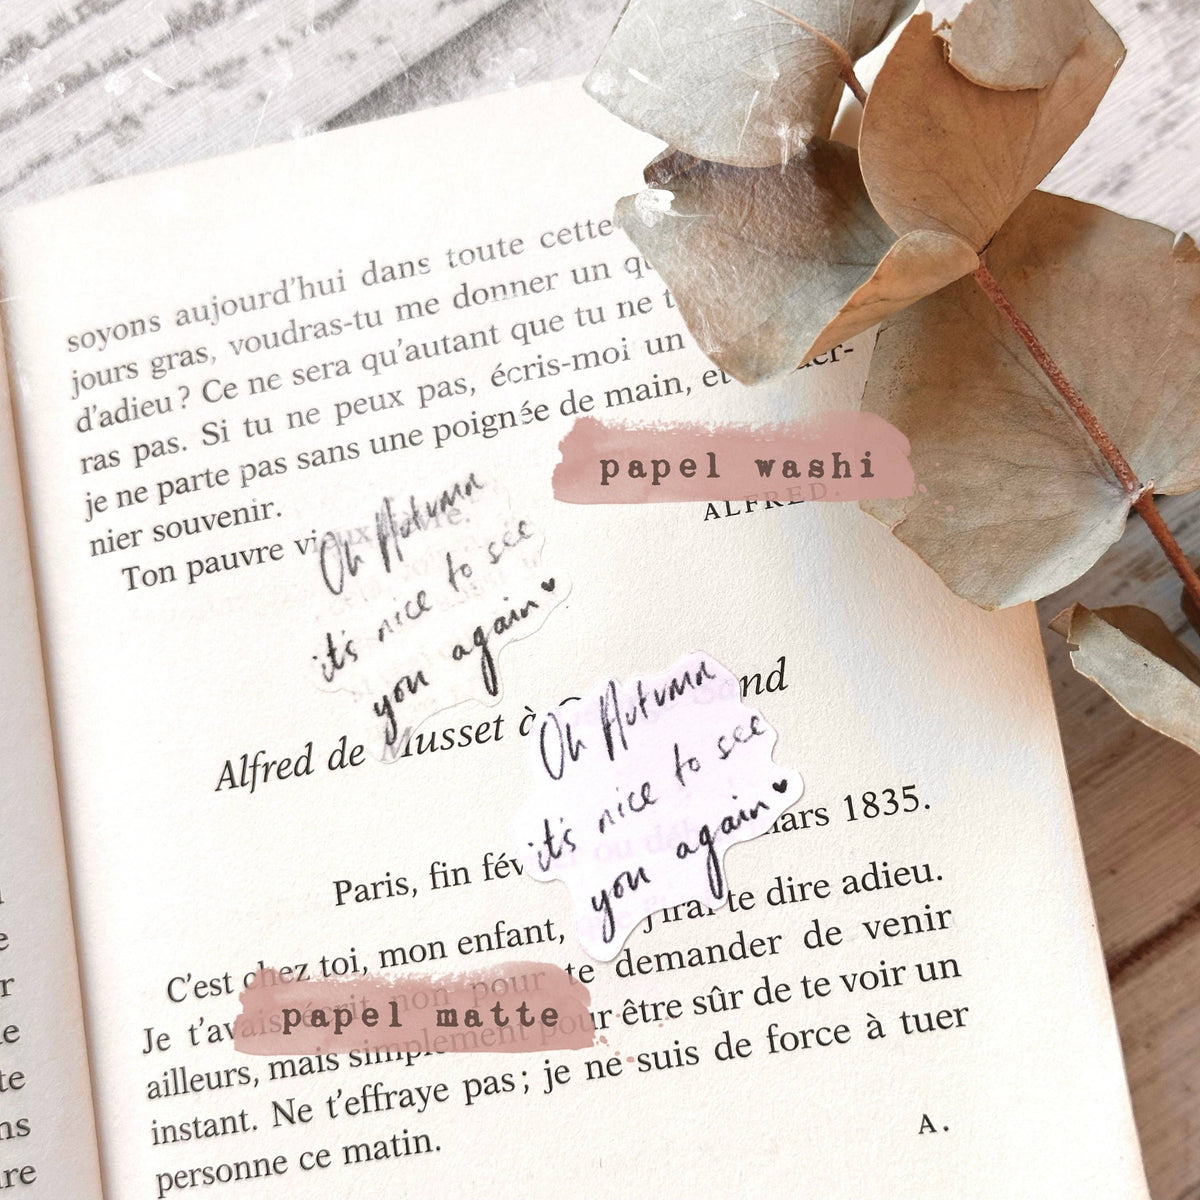 soyons aujourd'hui dans toute cette
jours gras, voudras-tu me donner un
d'adieu ? Ce ne sera qu'autant que tu ne
ras pas. Si tu ne peux pas, écris-moi un
je ne parte pas sans une poignée de main, et
nier souvenir.
Ton pauvre vieux
papel washi
ALFRED.
Oh Autumn
it's nice to see
you again
Alfred de Musset à Sand
Oh Autumn
it's nice to see
you again
Paris, fin mars 1835.
C'est chez toi, mon enfant, j'irai te dire adieu.
Je t'avais écrit non pour te demander de venir
papel matte
ailleurs, mais simplement pour être sûr de te voir un
instant. Ne t'effraye pas ; je ne suis de force à tuer
personne ce matin.
A.